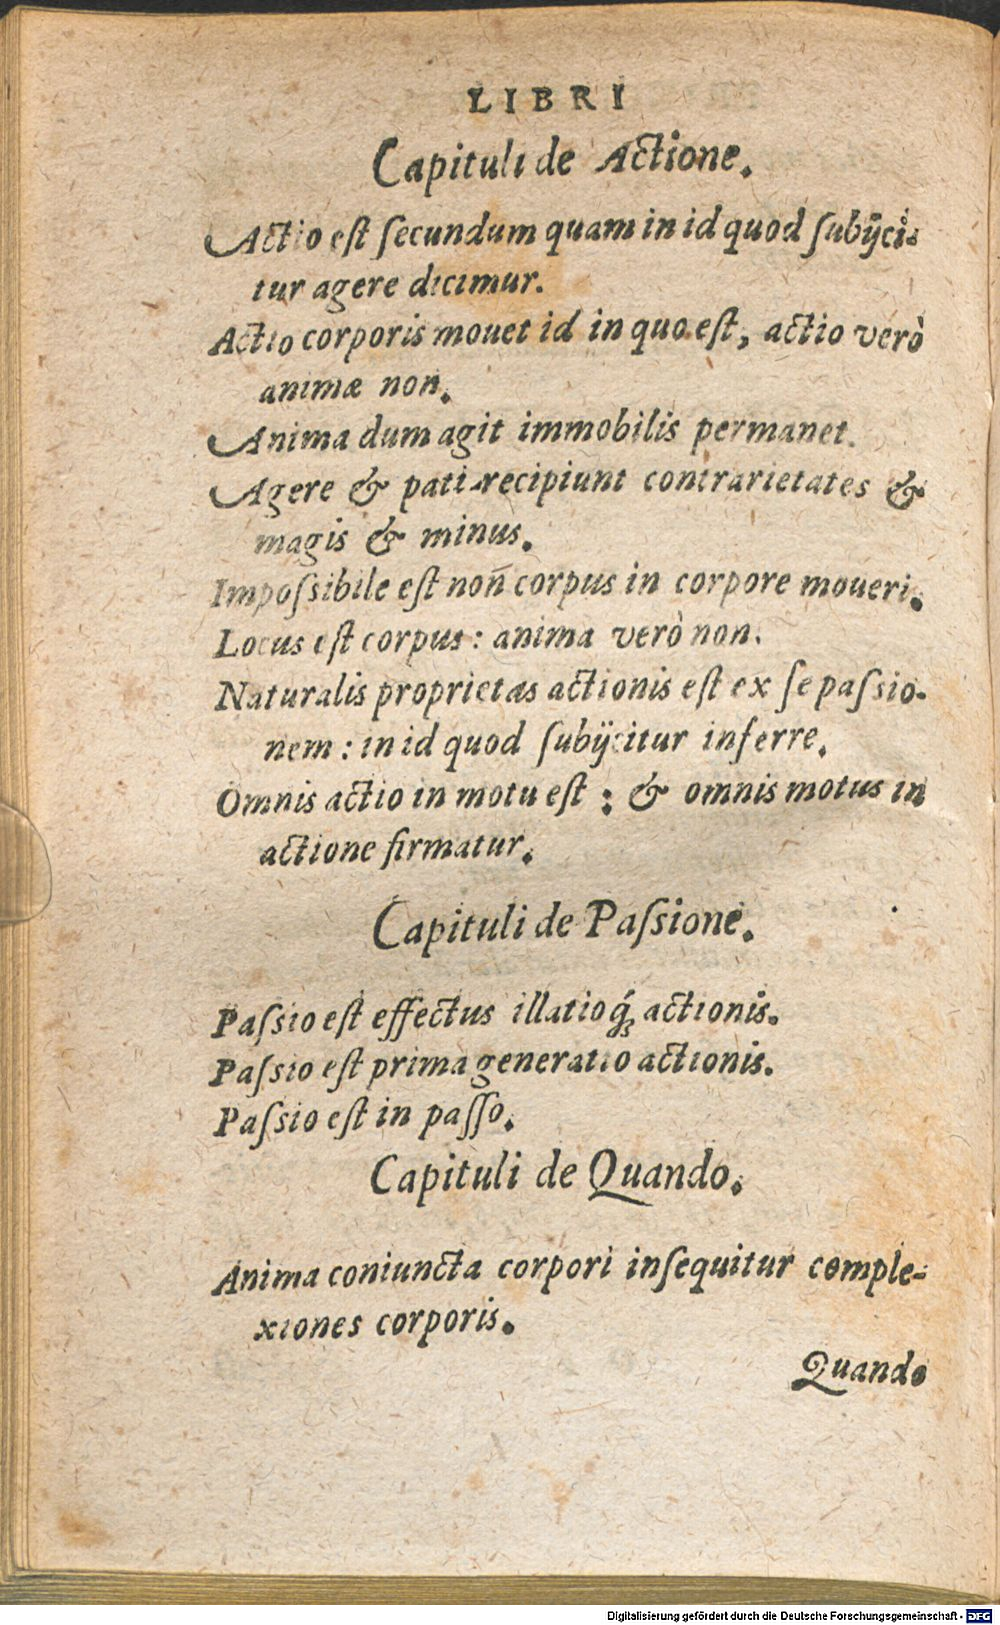 LIBRI
Capituli de Actione.
Actio eſt ſecundum quam in id quod ſubijci-
tur agere dicimur.
Actio corporis mouet id in quo eſt, actio verò
animæ non.
Anima dum agit immobilis permanet.
Agere & pati recipiunt contrarietates &
magis & minus.
Impoſsibile eſt non̄ corpus in corpore moueri.
Locus eſt corpus: anima verò non.
Naturalis proprietas actionis eſt ex ſe paſsio-
nem: in id quod ſubijcitur inferre.
Omnis actio in motu eſt: & omnis motus in
actione firmatur.
Capituli de Paſsione.
Paſsio eſt effectus illatioq́; actionis.
Paſsio eſt prima generatio actionis.
Paſsio eſt in paſſo.
Capituli de Quando.
Anima coniuncta corpori inſequitur comple-
xiones corporis.
Quando
Digitalisierung gefördert durch die Deutsche Forschungsgemeinschaft - DFG